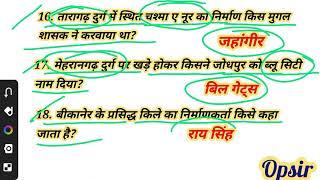 16. तारागढ़ दुर्ग में स्थित चश्मा ए नूर का निर्माण किस मुगल
शासक ने करवाया था?
जहांगीर
17. मेहरानगढ़ दुर्ग पर खड़े होकर किसने जोधपुर को ब्लू सिटी
नाम दिया?
बिल गेट्स
18. बीकानेर के प्रसिद्ध किले का निर्माणकर्ता किसे कहा
जाता है?
राय सिंह
Opsir